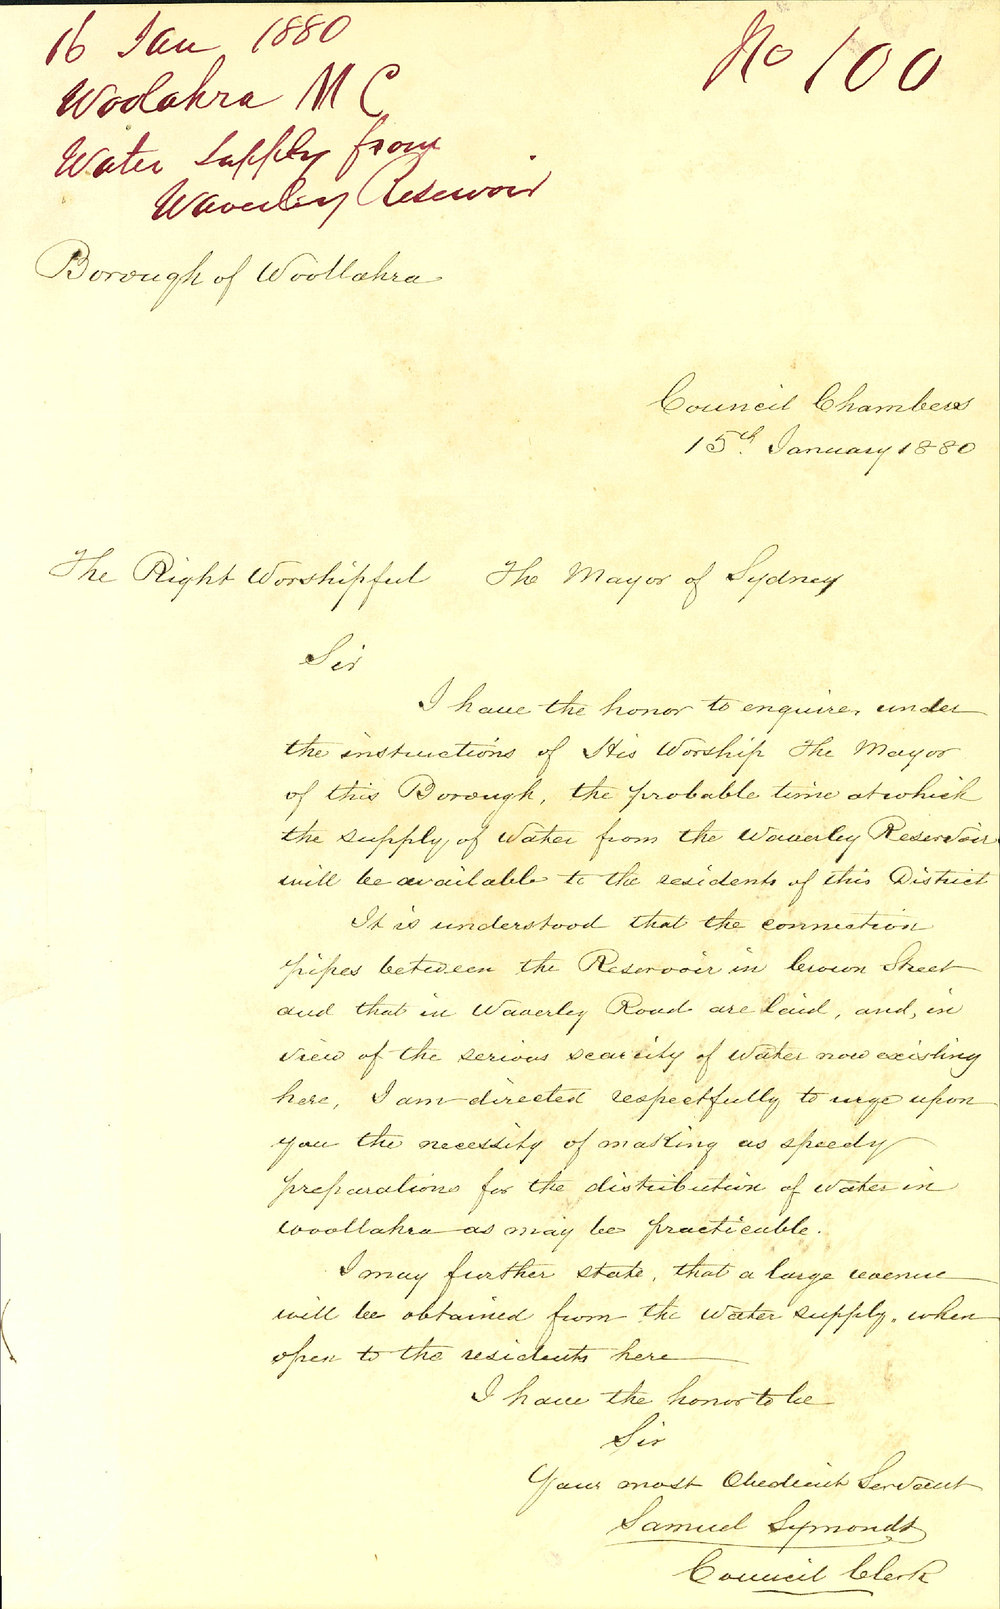 16 Jan 1880
No 100
Woolahra M C
Water Supply from
Waverley Reservoir
Borough of Woollahra
Council Chambers
15th January 1880
The Right Worshipful The Mayor of Sydney
Sir
I have the honor to enquire, under
the instructions of His Worship The Mayor
of this Borough, the probable time at which
the supply of Water from the Waverley Reservoir
will be available to the residents of this District
It is understood that the connection
pipes between the Reservoir in Crown Street
and that in Waverley Road are laid, and, in
view of the serious scarcity of Water now existing
here, I am directed respectfully to urge upon
you the necessity of making as speedy
preparations for the distribution of water in
Woollahra as may be practicable.
I may further state, that a large revenue
will be obtained from the Water supply, when
open to the residents here
I have the honor to be
Sir
Your most Obedient Servant
Samuel Symonds
Council Clerk